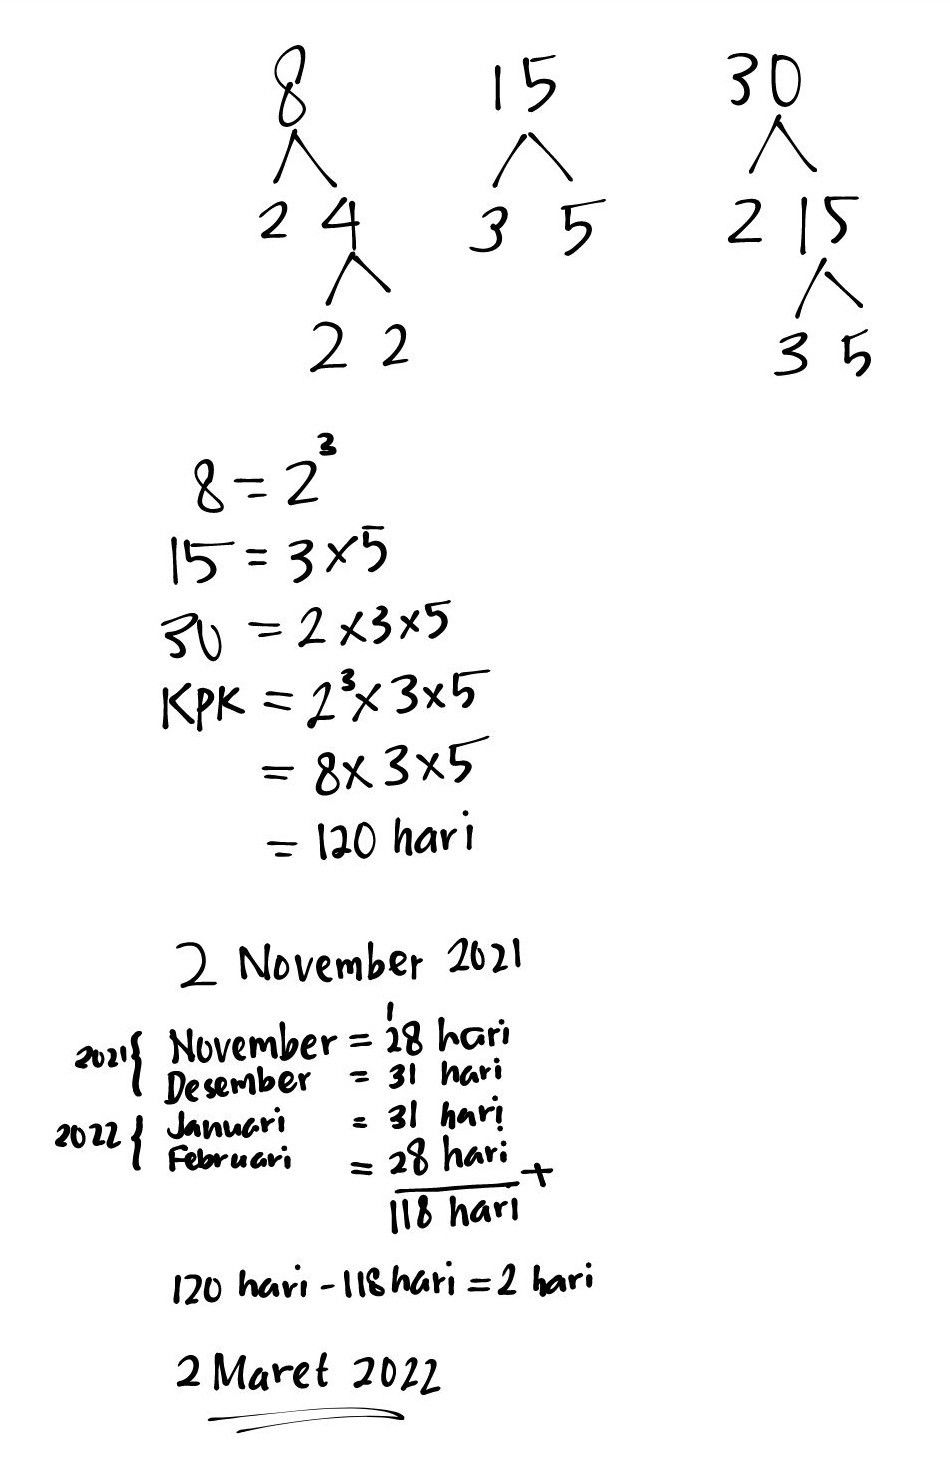 8 15 30
2 4 3 5 2 15
2 2 3 5
8 = 2³
15 = 3 × 5
30 = 2 × 3 × 5
KPK = 2³ × 3 × 5
= 8 × 3 × 5
= 120 hari
2 November 2021
1
2021 { November = 28 hari
Desember = 31 hari
2022 { Januari = 31 hari
Februari = 28 hari +
118 hari
120 hari - 118 hari = 2 hari
2 Maret 2022